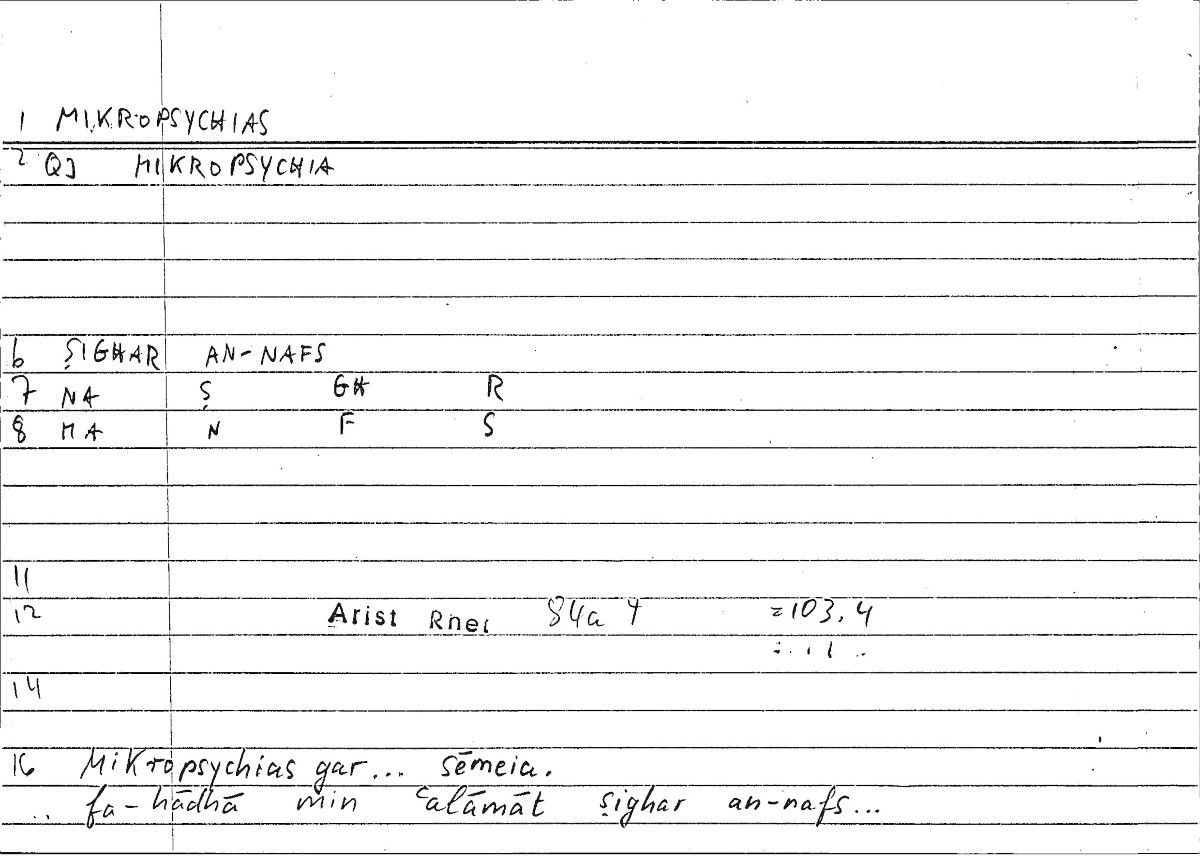 1 MIKROPSYCHIAS
2 QJ MIKROPSYCHIA
6 ṢIGHAR AN-NAFS
7 NA Ṣ GH R
8 MA N F S
11
12 Arist 84a 4 =103,4
14
16 Mikropsychias gar... sēmeia.
fa-hādhā min ʿalāmāt ṣighar an-nafs...